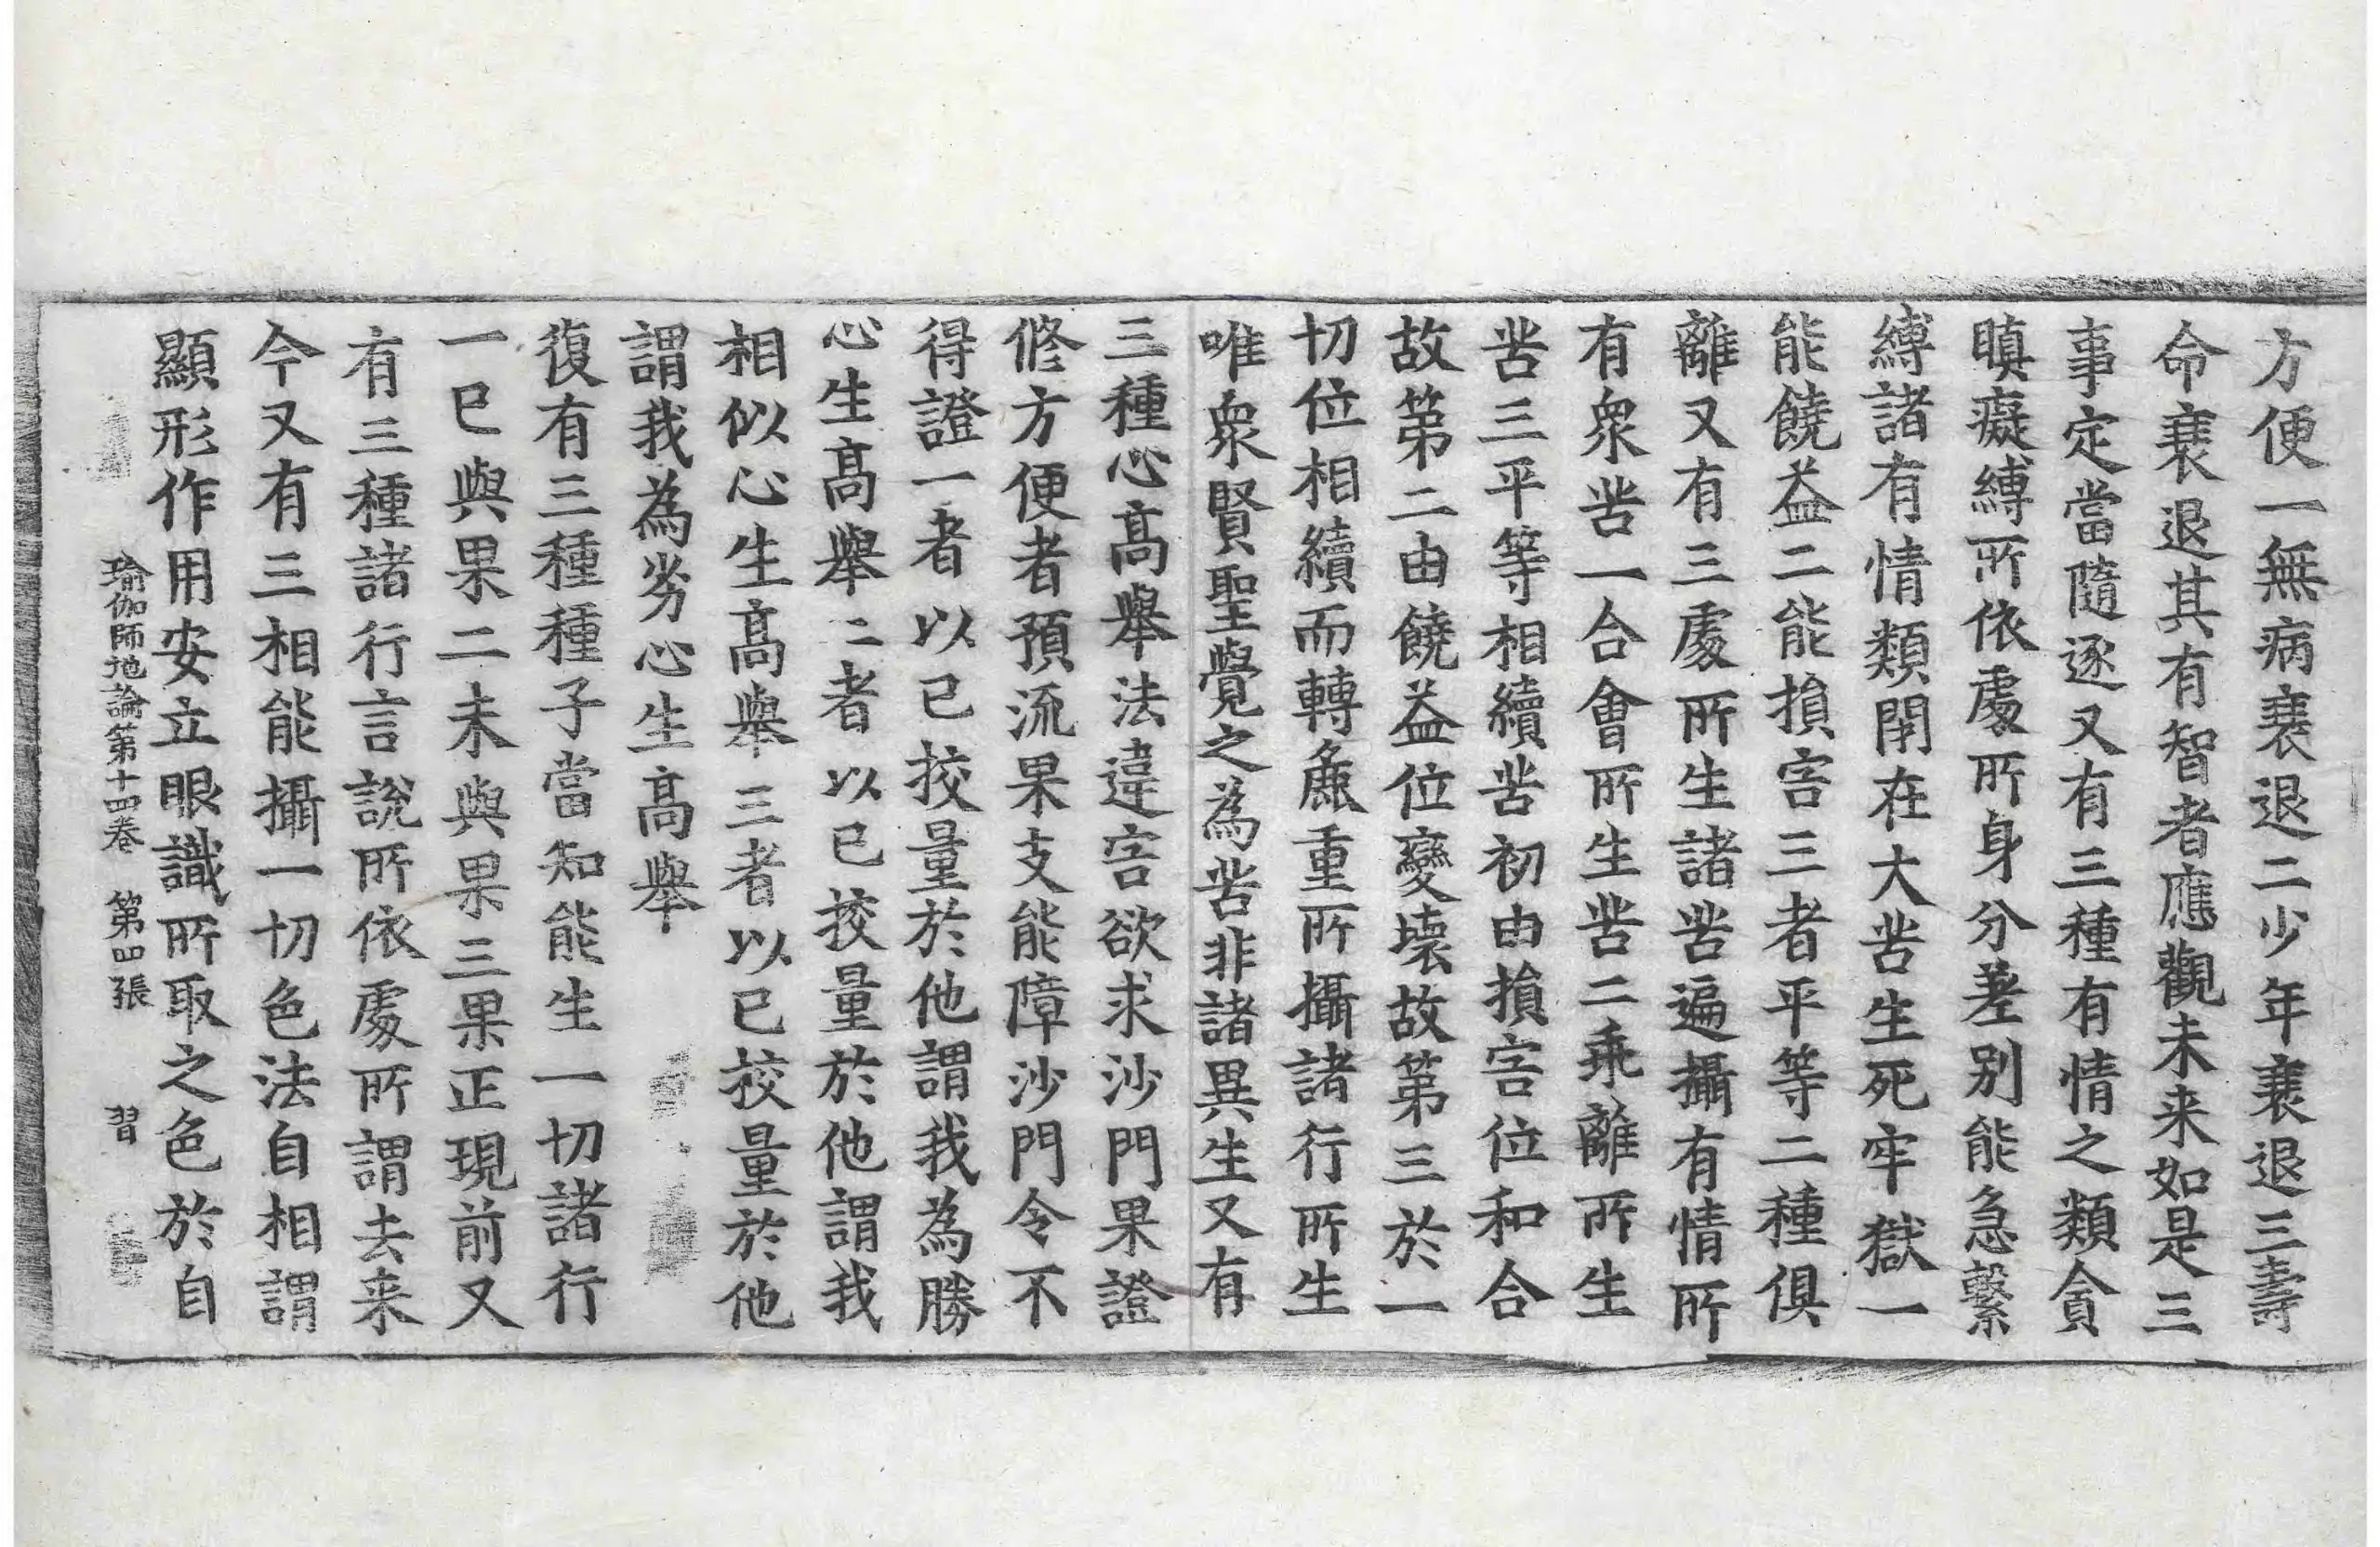 方便一無病衰退二少年衰退三壽
命衰退其有智者應觀未来如是三
事定當隨逐又有三種有情之類貪
瞋癡縛所依處所身分差别能急繫
縛諸有情類閇在大苦生死牢獄一
能饒益二能損害三者平等二種俱
離又有三處所生諸苦遍攝有情所
有衆苦一合會所生苦二乖離所生
苦三平等相續苦初由損害位和合
故第二由饒益位變壞故第三於一
切位相續而轉麁重所攝諸行所生
唯衆賢聖覺之為苦非諸異生又有
三種心高舉法違害欲求沙門果證
脩方便者預流果支能障沙門令不
得證一者以己挍量於他謂我為勝
心生髙舉二者以己挍量於他謂我
相似心生髙舉三者以己挍量於他
謂我為劣心生髙舉
復有三種種子當知能生一切諸行
一已與果二未與果三果正現前又
有三種諸行言說所依處所謂去来
今又有三相能攝一切色法自相謂
顯形作用安立眼識所取之色於自
瑜伽師地論第十四卷　第四張　習